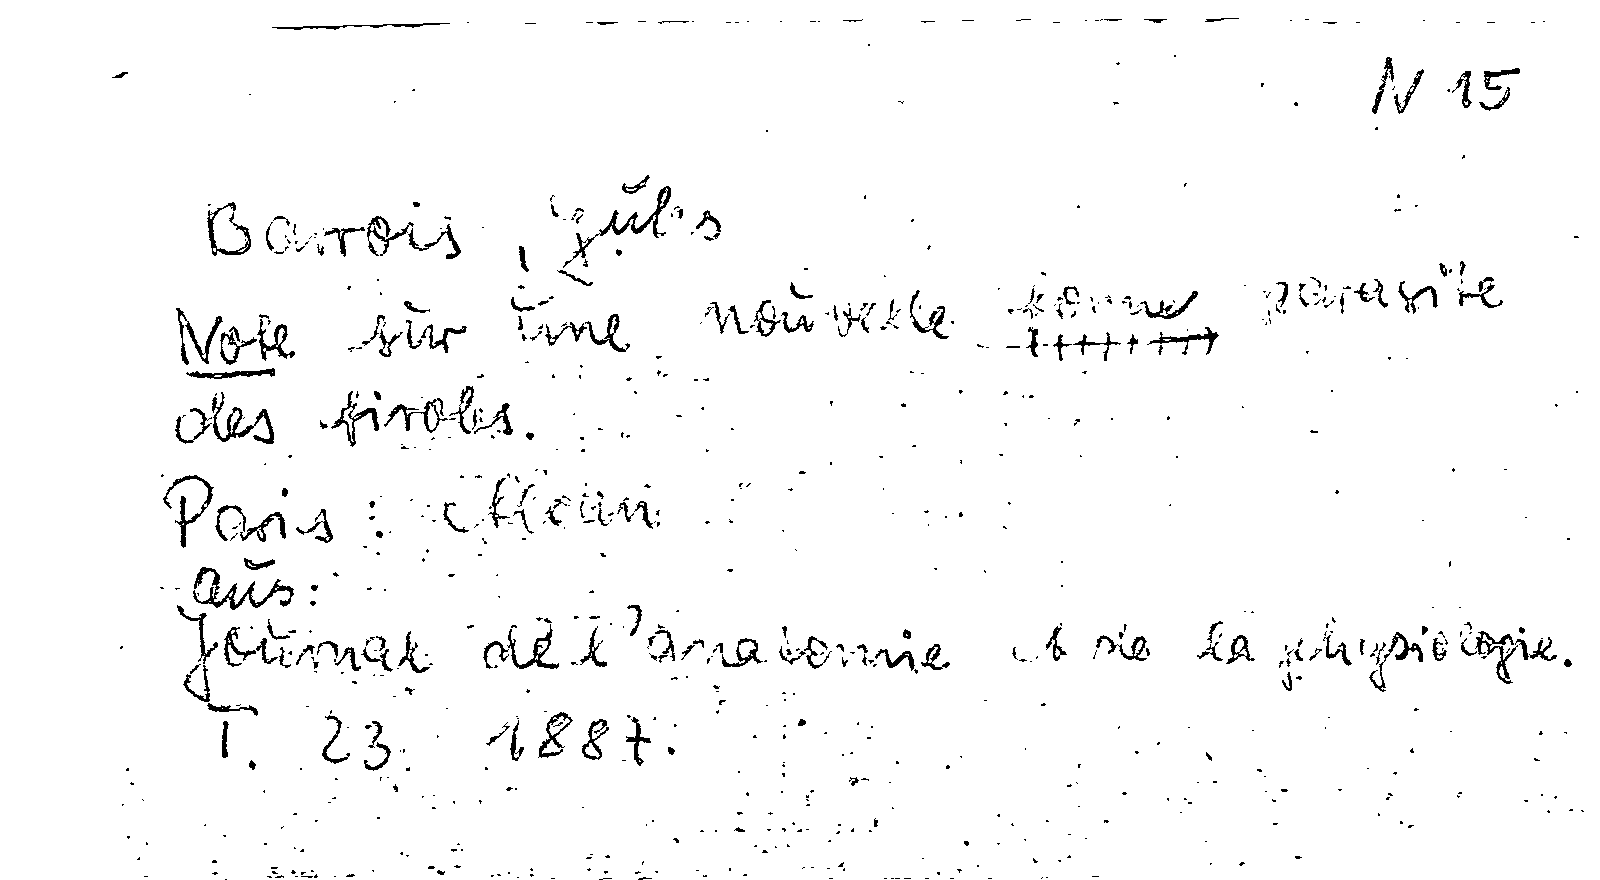 N 15
Barrois, Jules
Note sur une nouvelle forme parasite
des firoles.
Paris: Alcan
aus:
Journal de l'anatomie et de la physiologie.
T. 23. 1887.